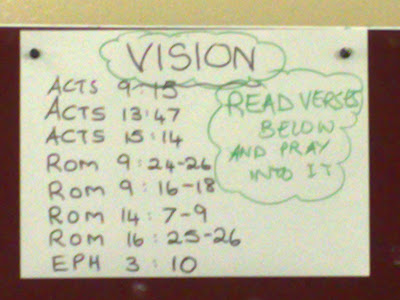 VISION
ACTS 9-15
ACTS 13:47
ACTS 15:14
ROM 9:24-26
ROM 9:16-18
ROM 14:7-9
ROM 16:25-26
EPH 3:10
READ VERSES
BELOW
AND PRAY
INTO IT